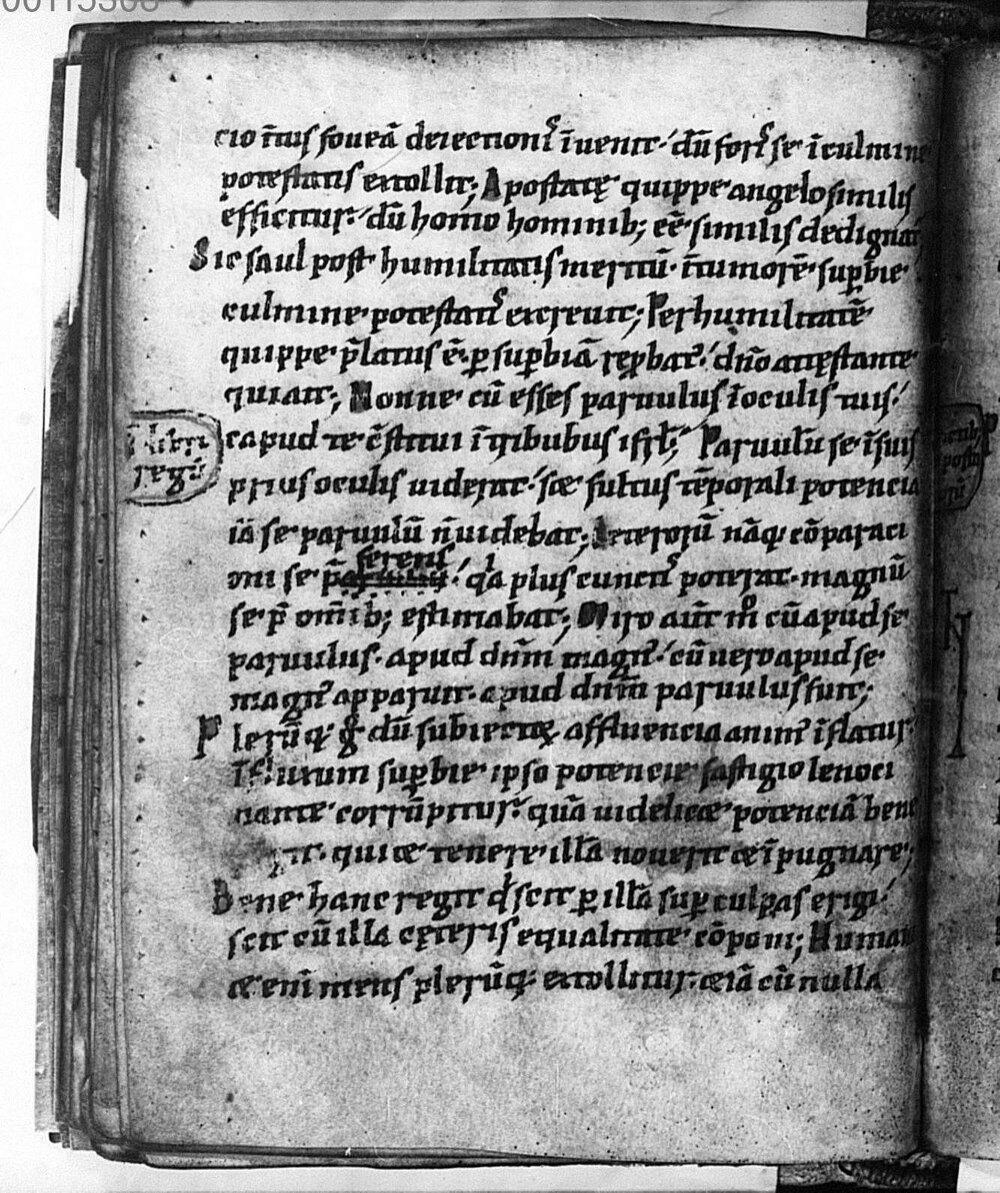 cio īt̄us foueā deiection᷒ īuenit. dū fori᷒ se ī culmine
potestatis extollit; Apostatę quippe angelo similis
efficitur. dū homo hominib; eē similis dedignat᷒
Sic saul post humilitatis meritū. ī tumorē suꝑbie
culmine potestati᷒ excreuit; Per humilitatē
quippe p̄latus ē. ꝑ suꝑbiā reꝓbat᷒. dn̄o attestante
qui ait; Nonne cū esses paruulus ī oculis tuis.
capud te c̄stitui ī tribubus isrl̄; Paruulū se ī suis
prius oculis uiderat. sꝫ fultus tēporali potencia
iā se paruulū n̄ uidebat; Ceterorū nāq; cōparaci
oni se p̄ferens. qͥa plus cuncti᷒ poterat. magnū
se p̄ om̄ib; estimabat; Miro aūt m̊ cū apud se
paruulus. apud dn̄m magn᷒. cū uero apud se
magn᷒ apparuit. apud dn̄m paruulus fuit;
Plerūq; g̊ dū subiectoꝝ affluencia anim᷒ īflatur.
ī fluxum suꝑbie ipso potencie fastigio lenoci
nante corrūpitur. quā uidelicꝫ potenciā bene
qui et tenere illā nouerit et īpugnare;
Bene hanc regit q̄ scit ꝑ illā suꝑ culpas erigi.
scit cū illa cęteris equalitate cōponi; Human
a enī mens plerūq; extollitur. etiā cū nulla
ī libri
regū